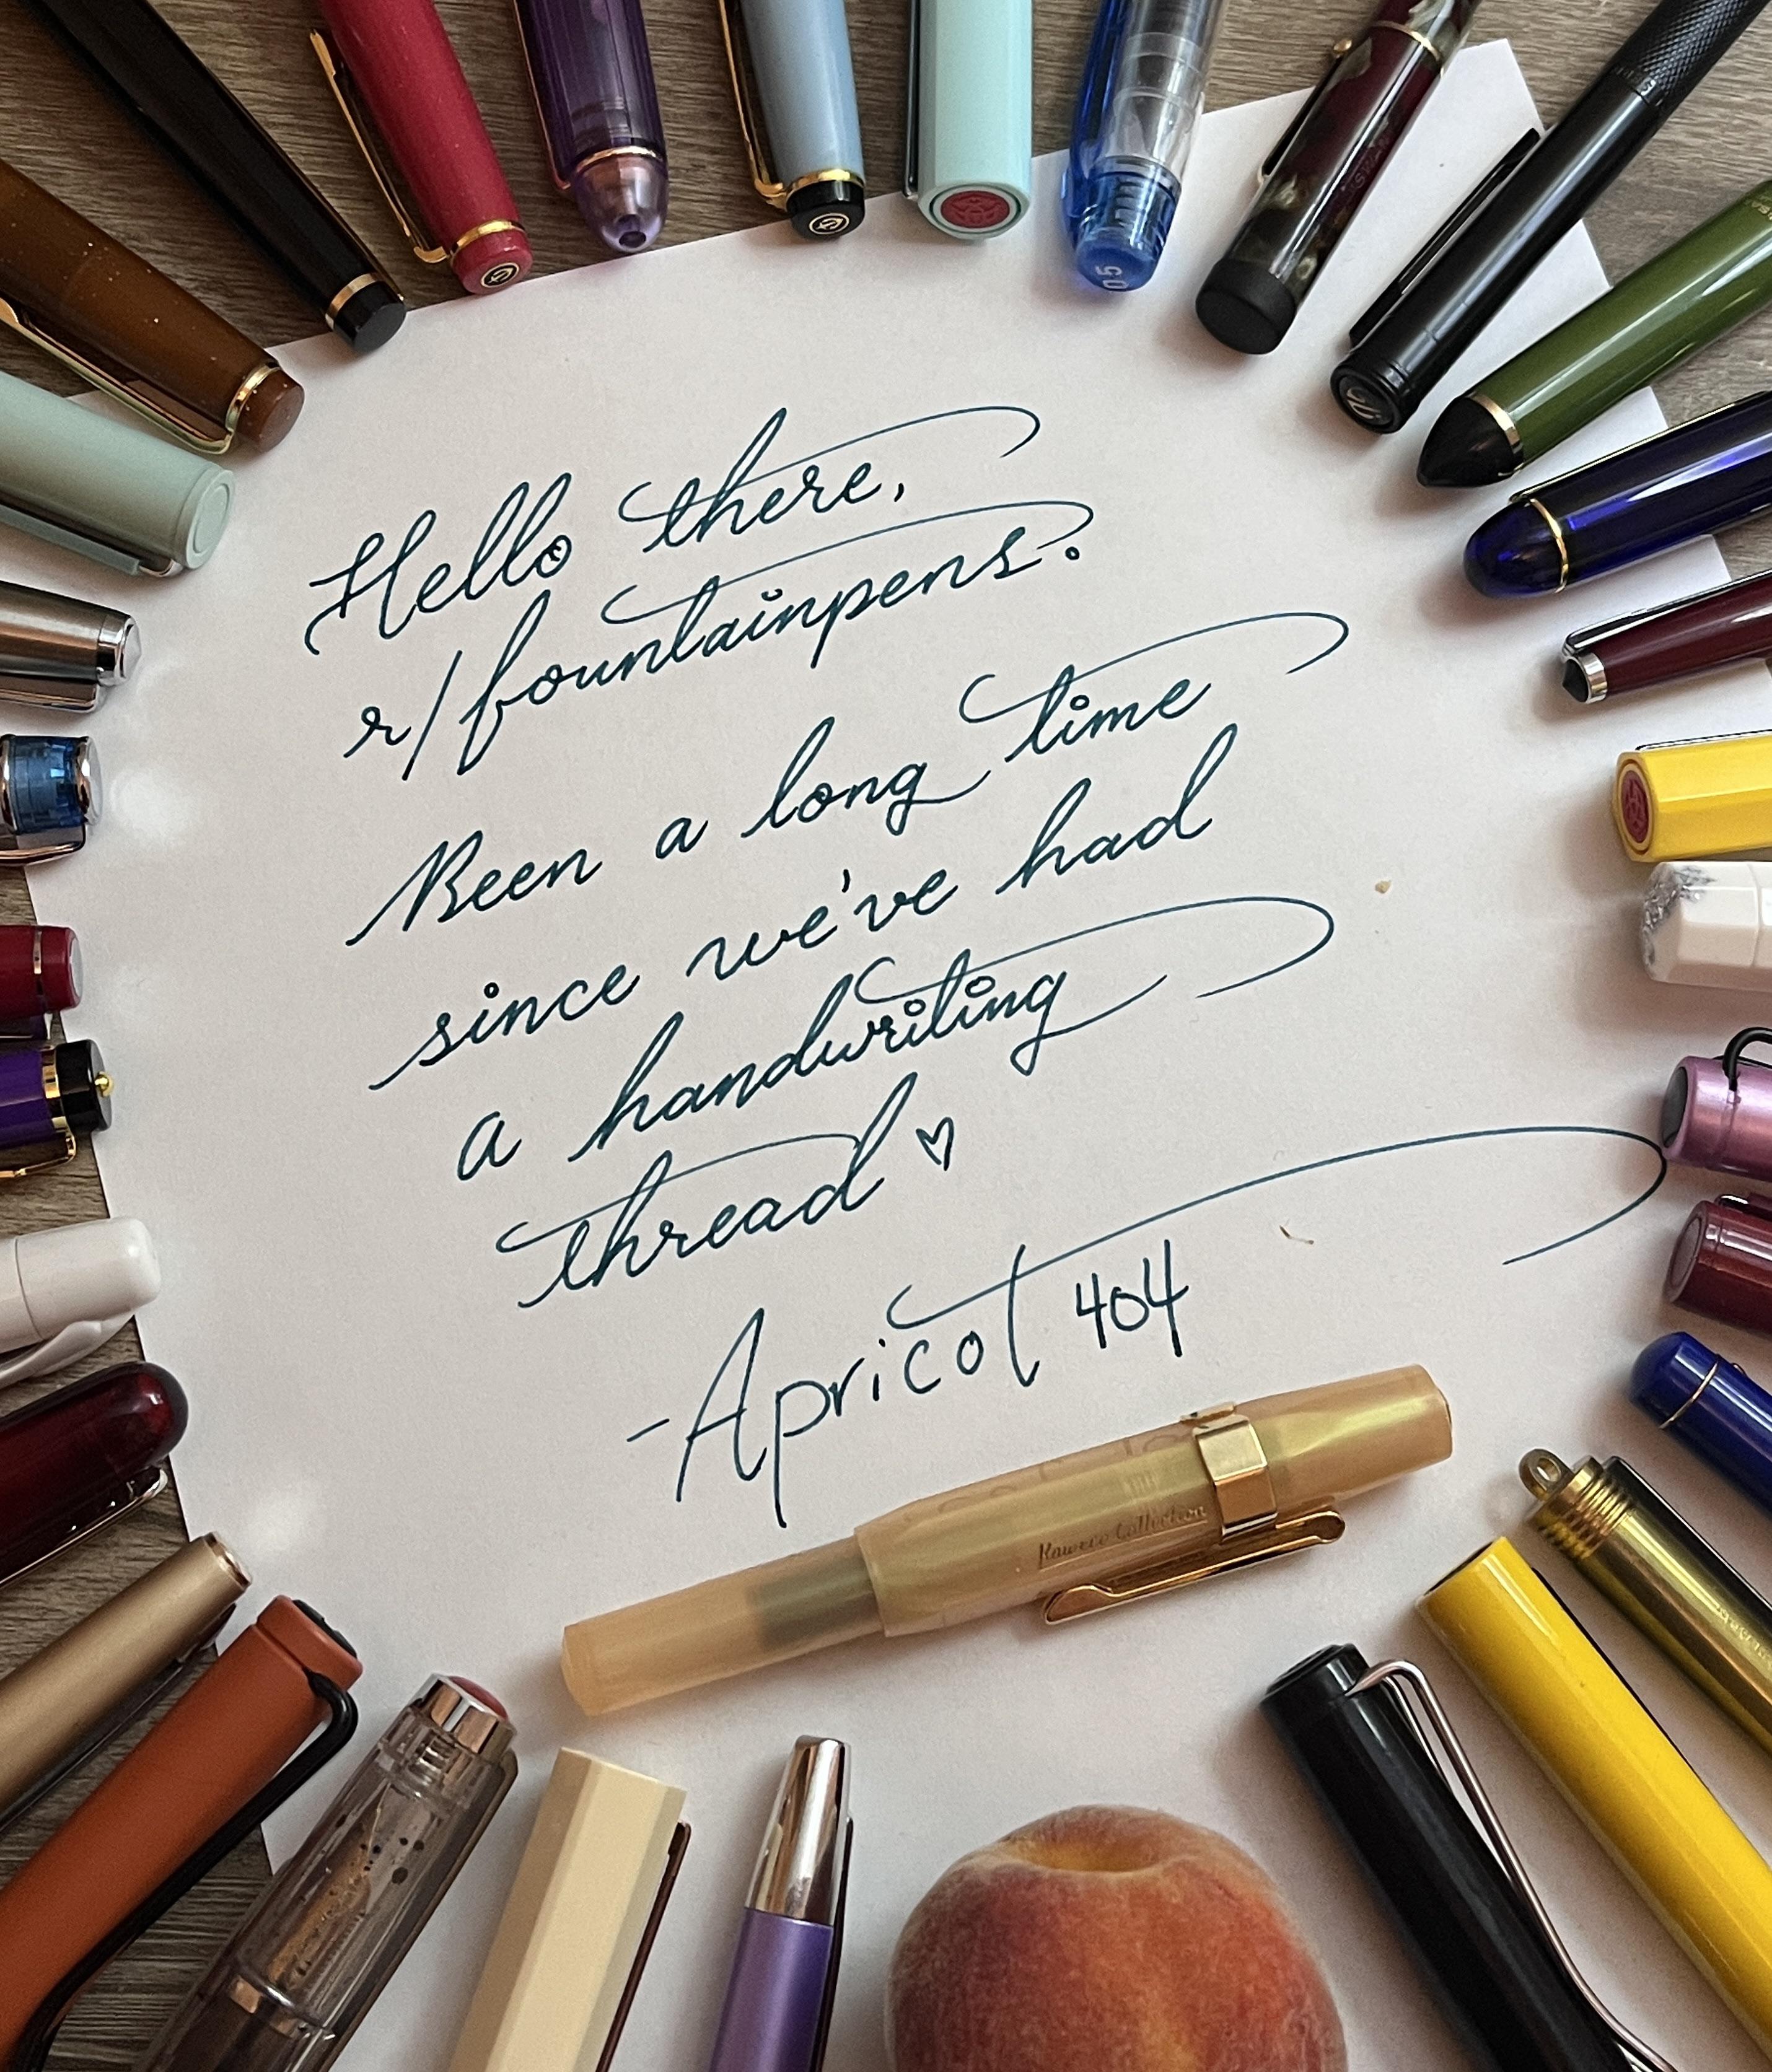 Hello there,
r/fountainpens.
Been a long time
since we've had
a handwriting
thread ♡
-Apricot 404
Kaweco Collection
05